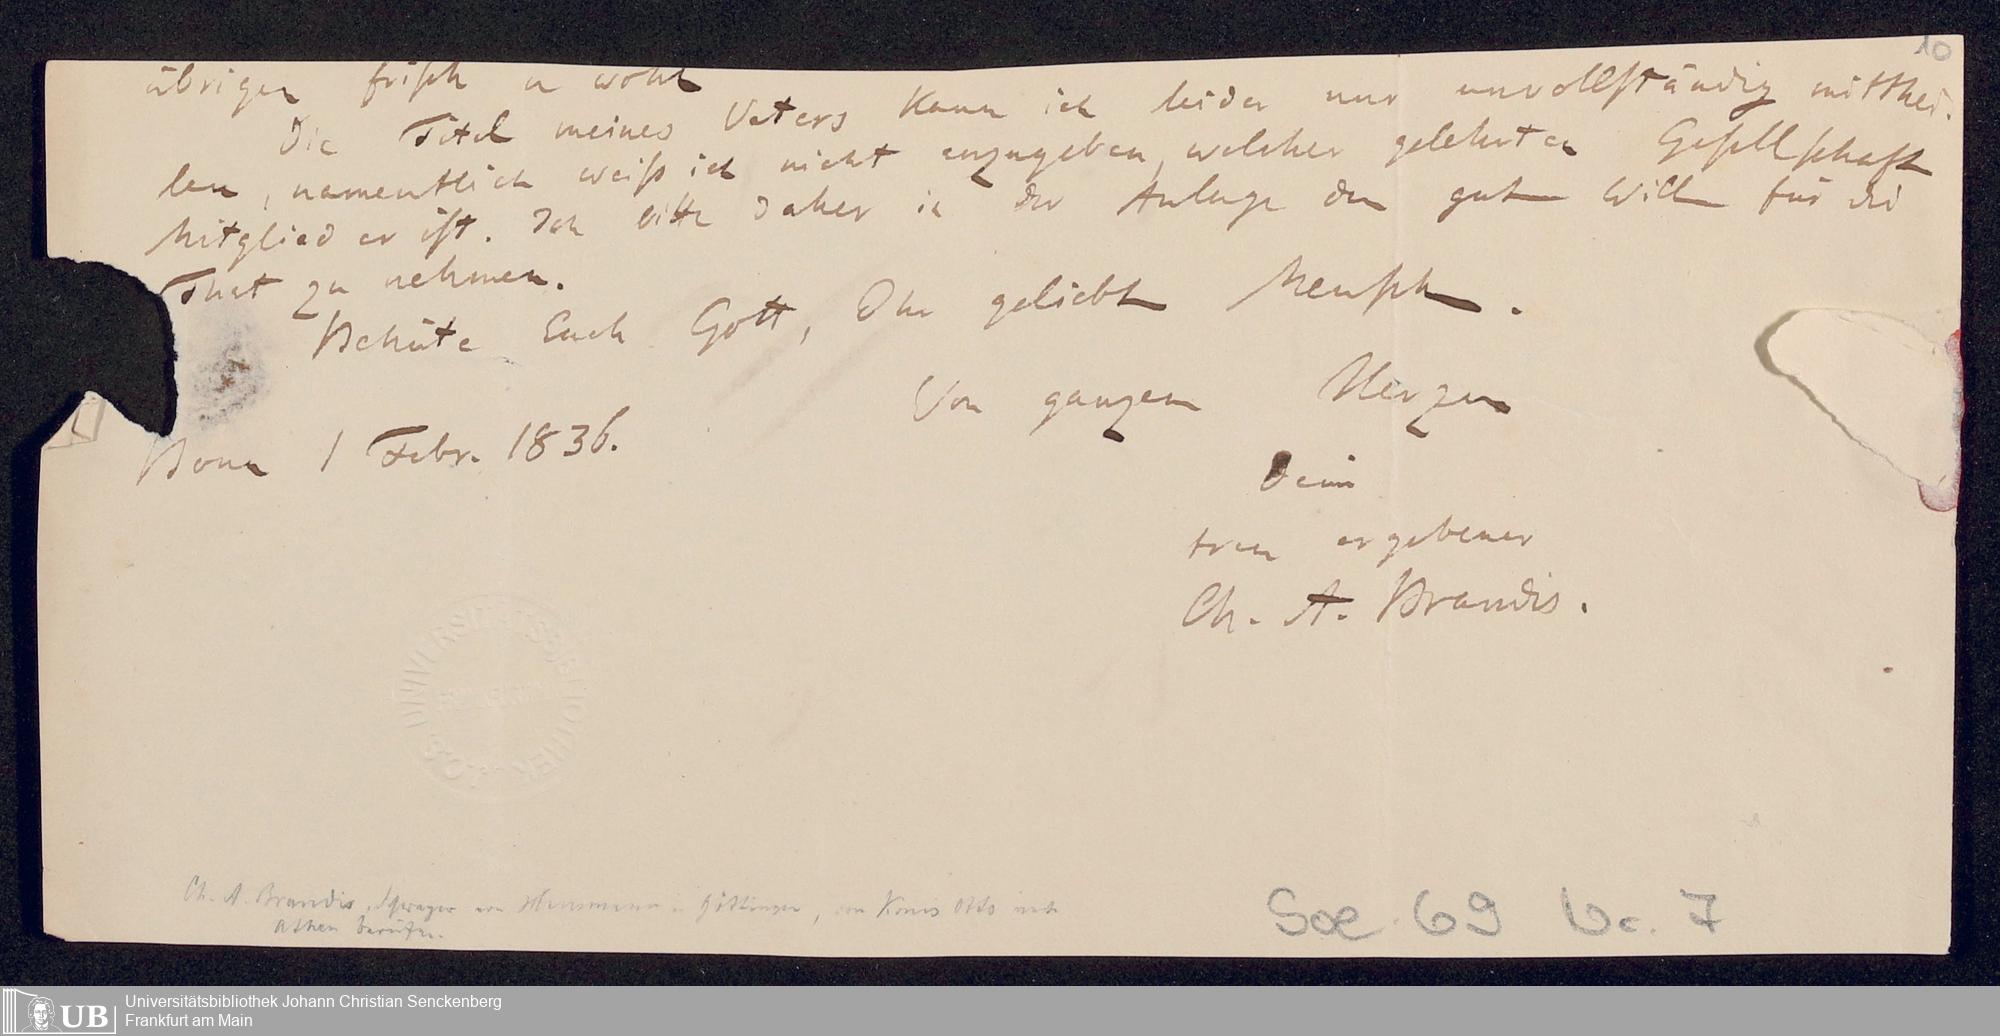 10
übrigen frisch u wohl
Die Titel meines Vaters kann ich leider nur unvollständig mitthei-
len, namentlich weiß ich nicht anzugeben, welcher gelehrten Gesellschaft
Mitglied er ist. Ich bitte daher in der Anlage den guten Willen für die
That zu nehmen.
Behüte Euch Gott, Ihr geliebten Menschen.
Von ganzem Herzen
Dein
treu ergebener
Ch. A. Brandis.
Bonn 1 Febr. 1836.
UNIVERSITÄTSBIBLIOTHEK
Ch. A. Brandis, Schwager von Hausmann in Göttingen, von König Otto nach
Athen berufen.
Soe 69 Nc. 7
UB
Universitätsbibliothek Johann Christian Senckenberg
Frankfurt am Main